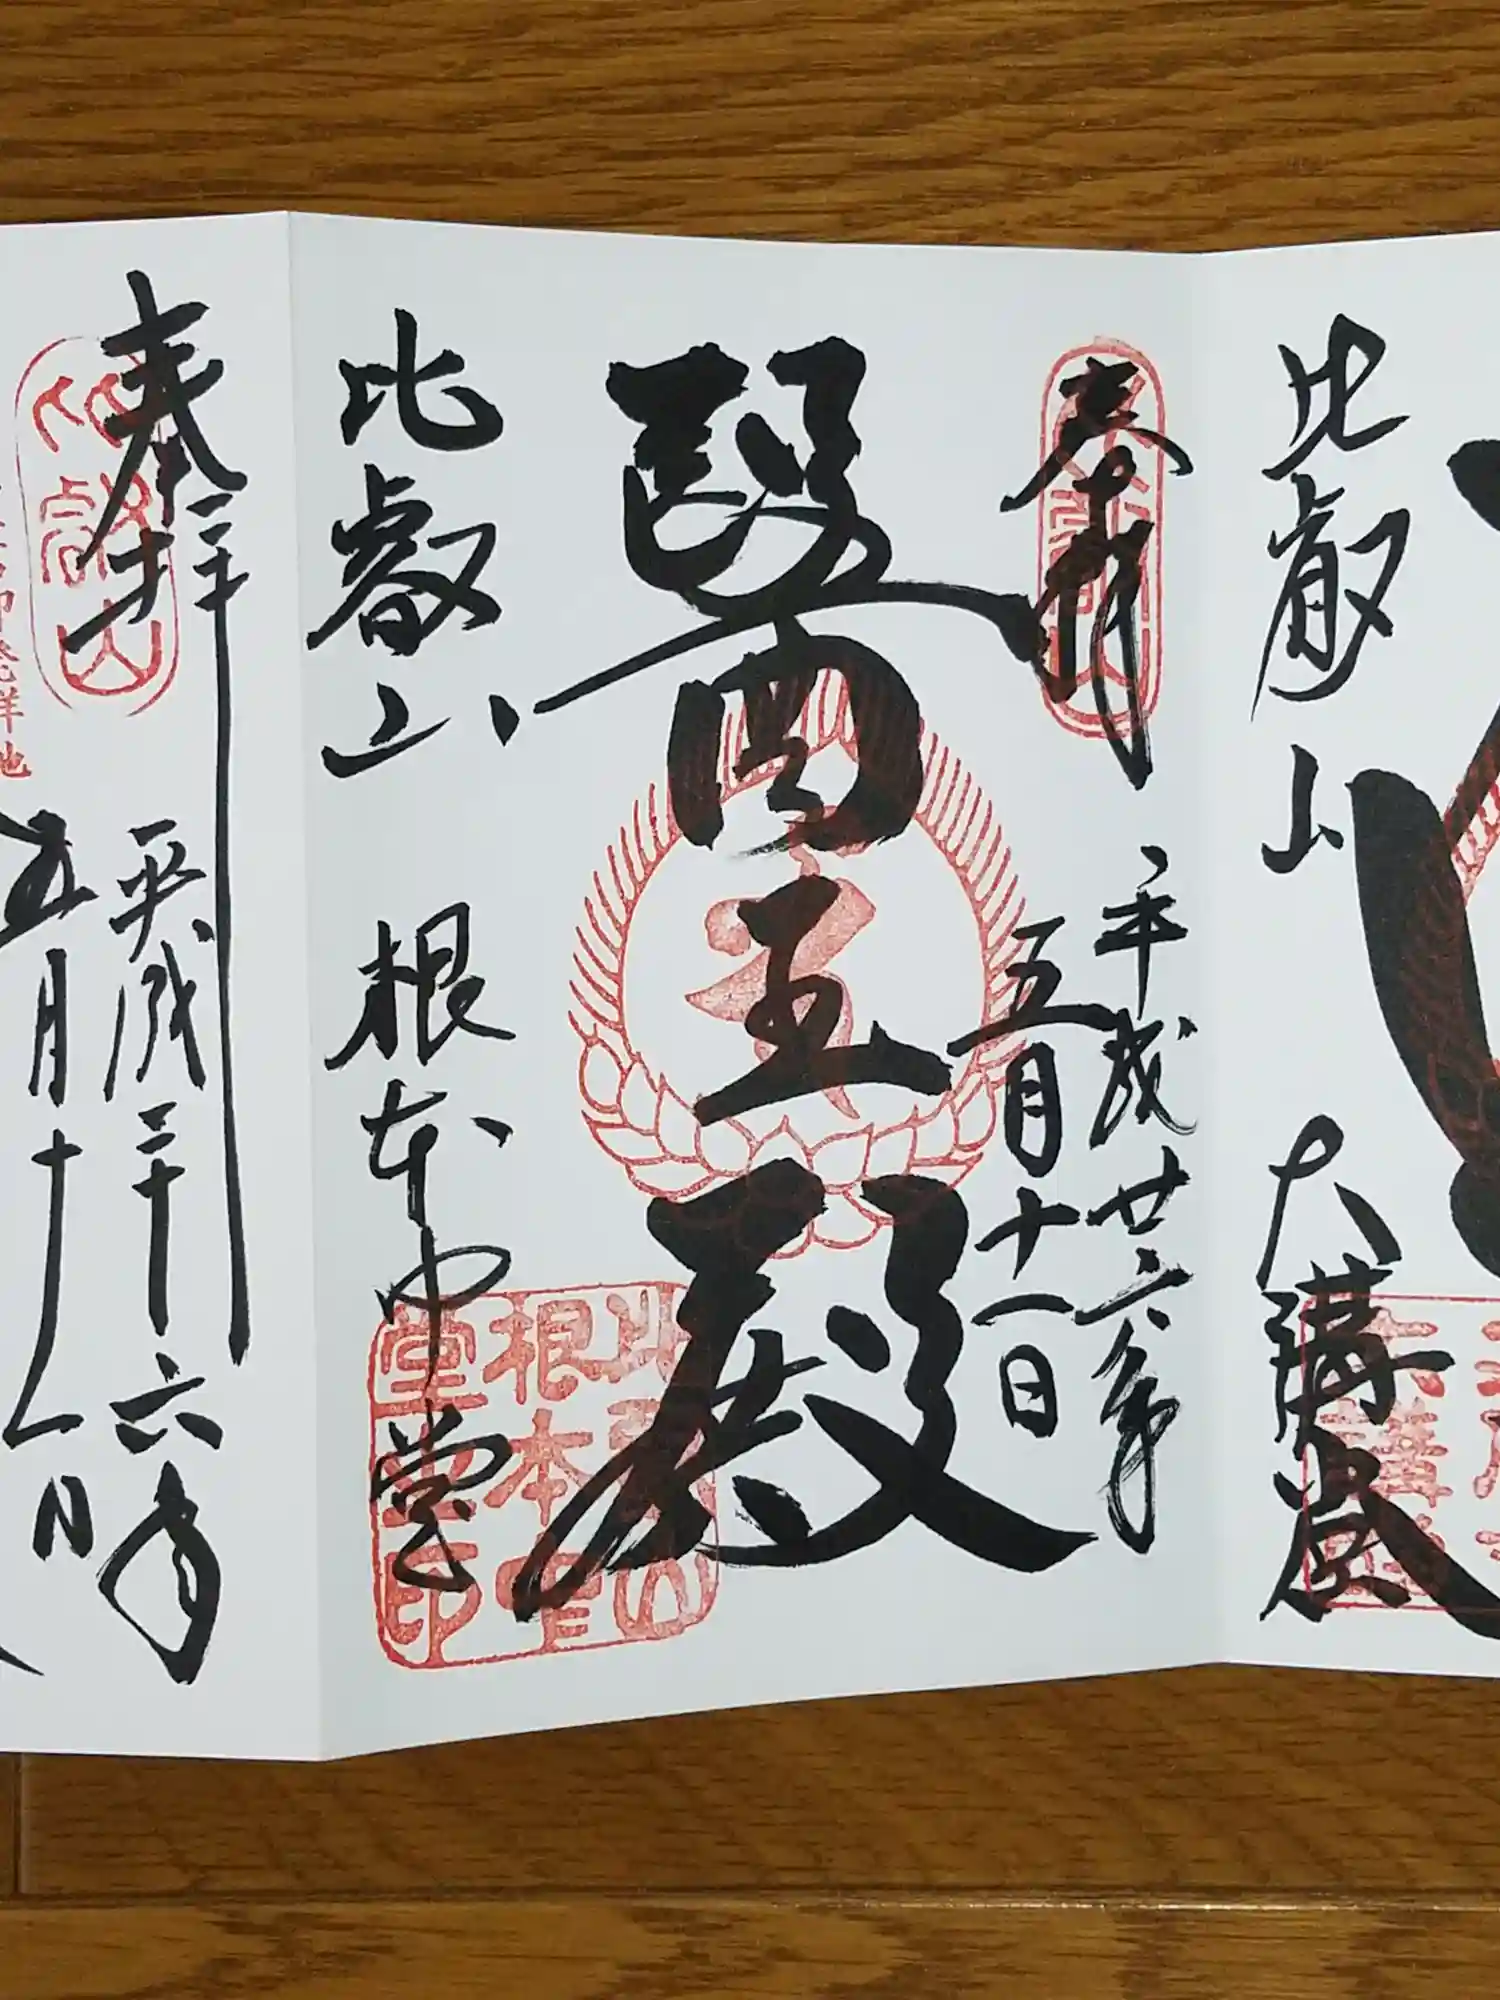 比叡山
大講堂
奉拝
平成廿六年
五月十一日
醫王殿
比叡山 根本中堂
比叡山
根本中
堂印
奉拝
比叡山
平成二十六年
五月十一日
発祥地